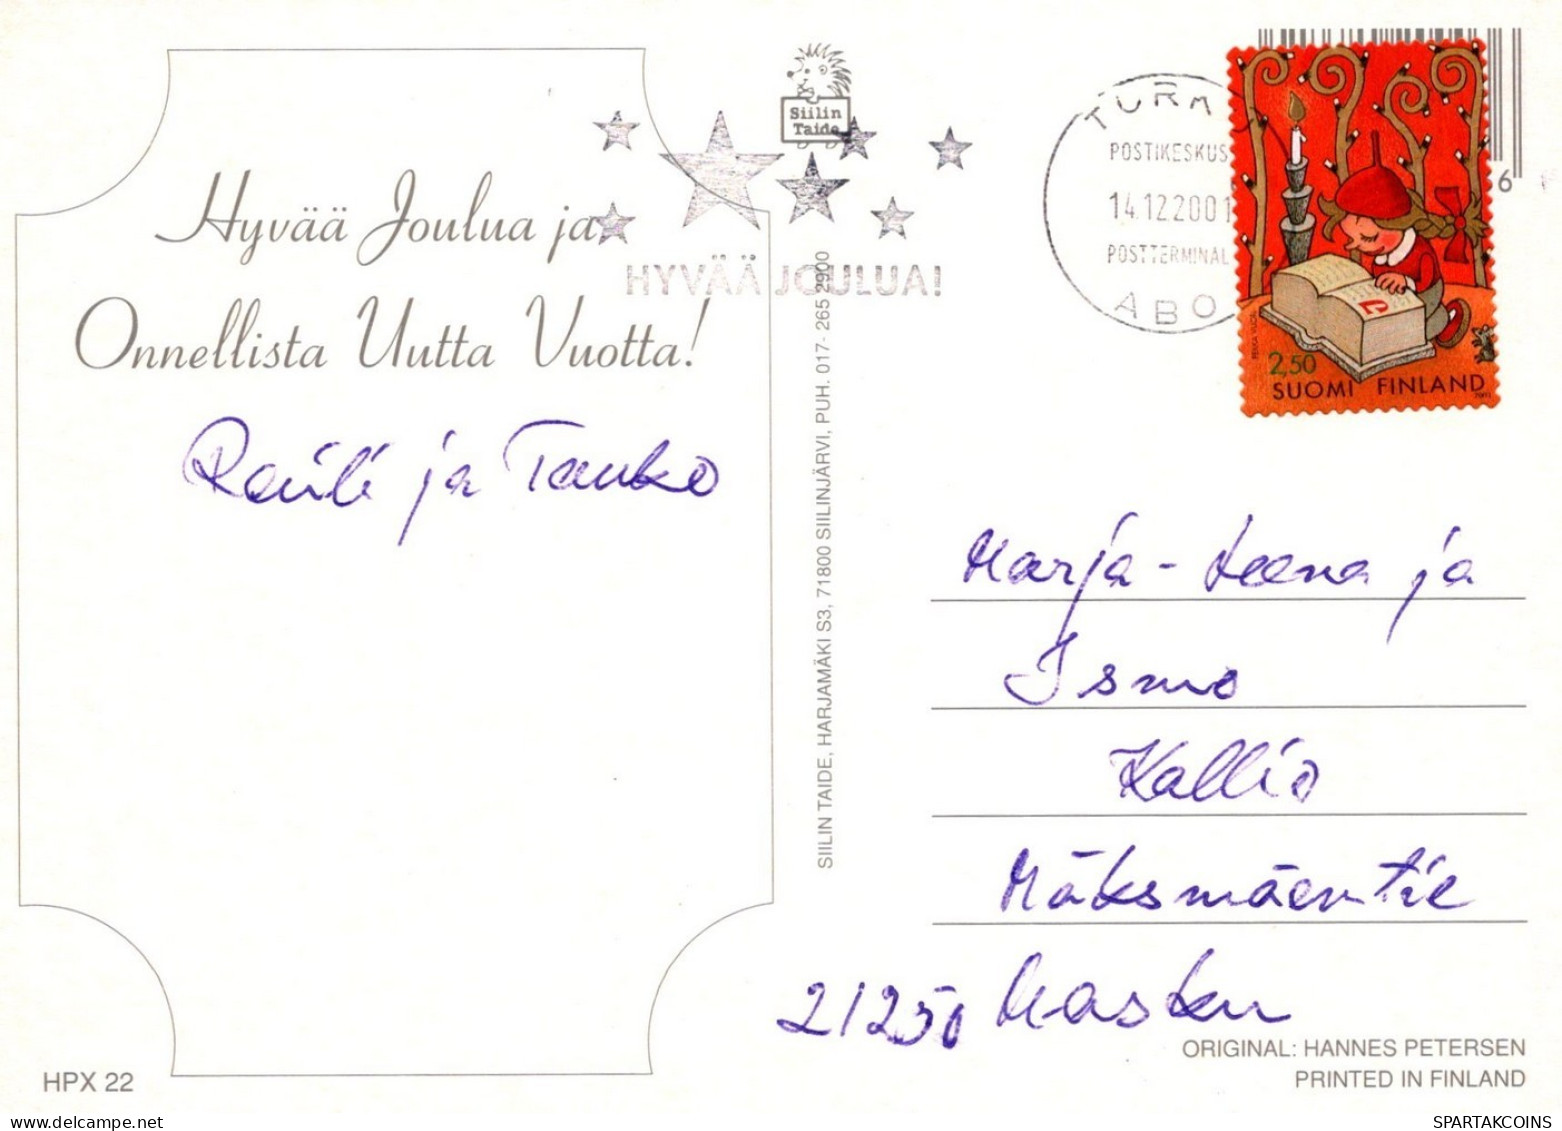 Siilin
Taide
Hyvää Joulua ja
Onnellista Uutta Vuotta!
HYVÄÄ JOULUA!
TURKU
POSTIKESKUS
14.12.2001
POSTTERMINAL
ABO
6
PEKKA VUORI
2,50
SUOMI FINLAND
2001
Rauli ja Tauko
SIILIN TAIDE, HARJAMÄKI S3, 71800 SIILINJÄRVI, PUH. 017- 265 2900
Marja-Leena ja
Ismo
Kallio
Mäksmäentie
21250 Masku
ORIGINAL: HANNES PETERSEN
PRINTED IN FINLAND
HPX 22
SPARTAKCOINS